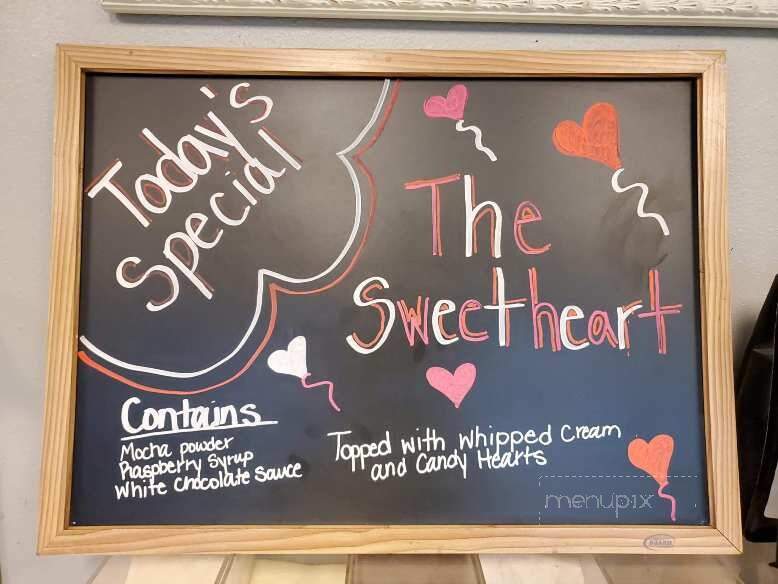 Today's
Special
The
Sweetheart
Contains
Mocha powder
Raspberry Syrup
White Chocolate Sauce
Topped with Whipped Cream
and Candy Hearts
menupix